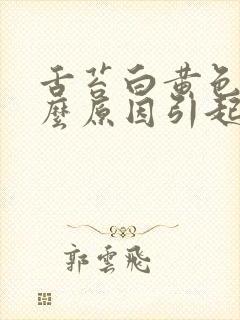 舌苔白黄色
麼原因引起
郭雲飛